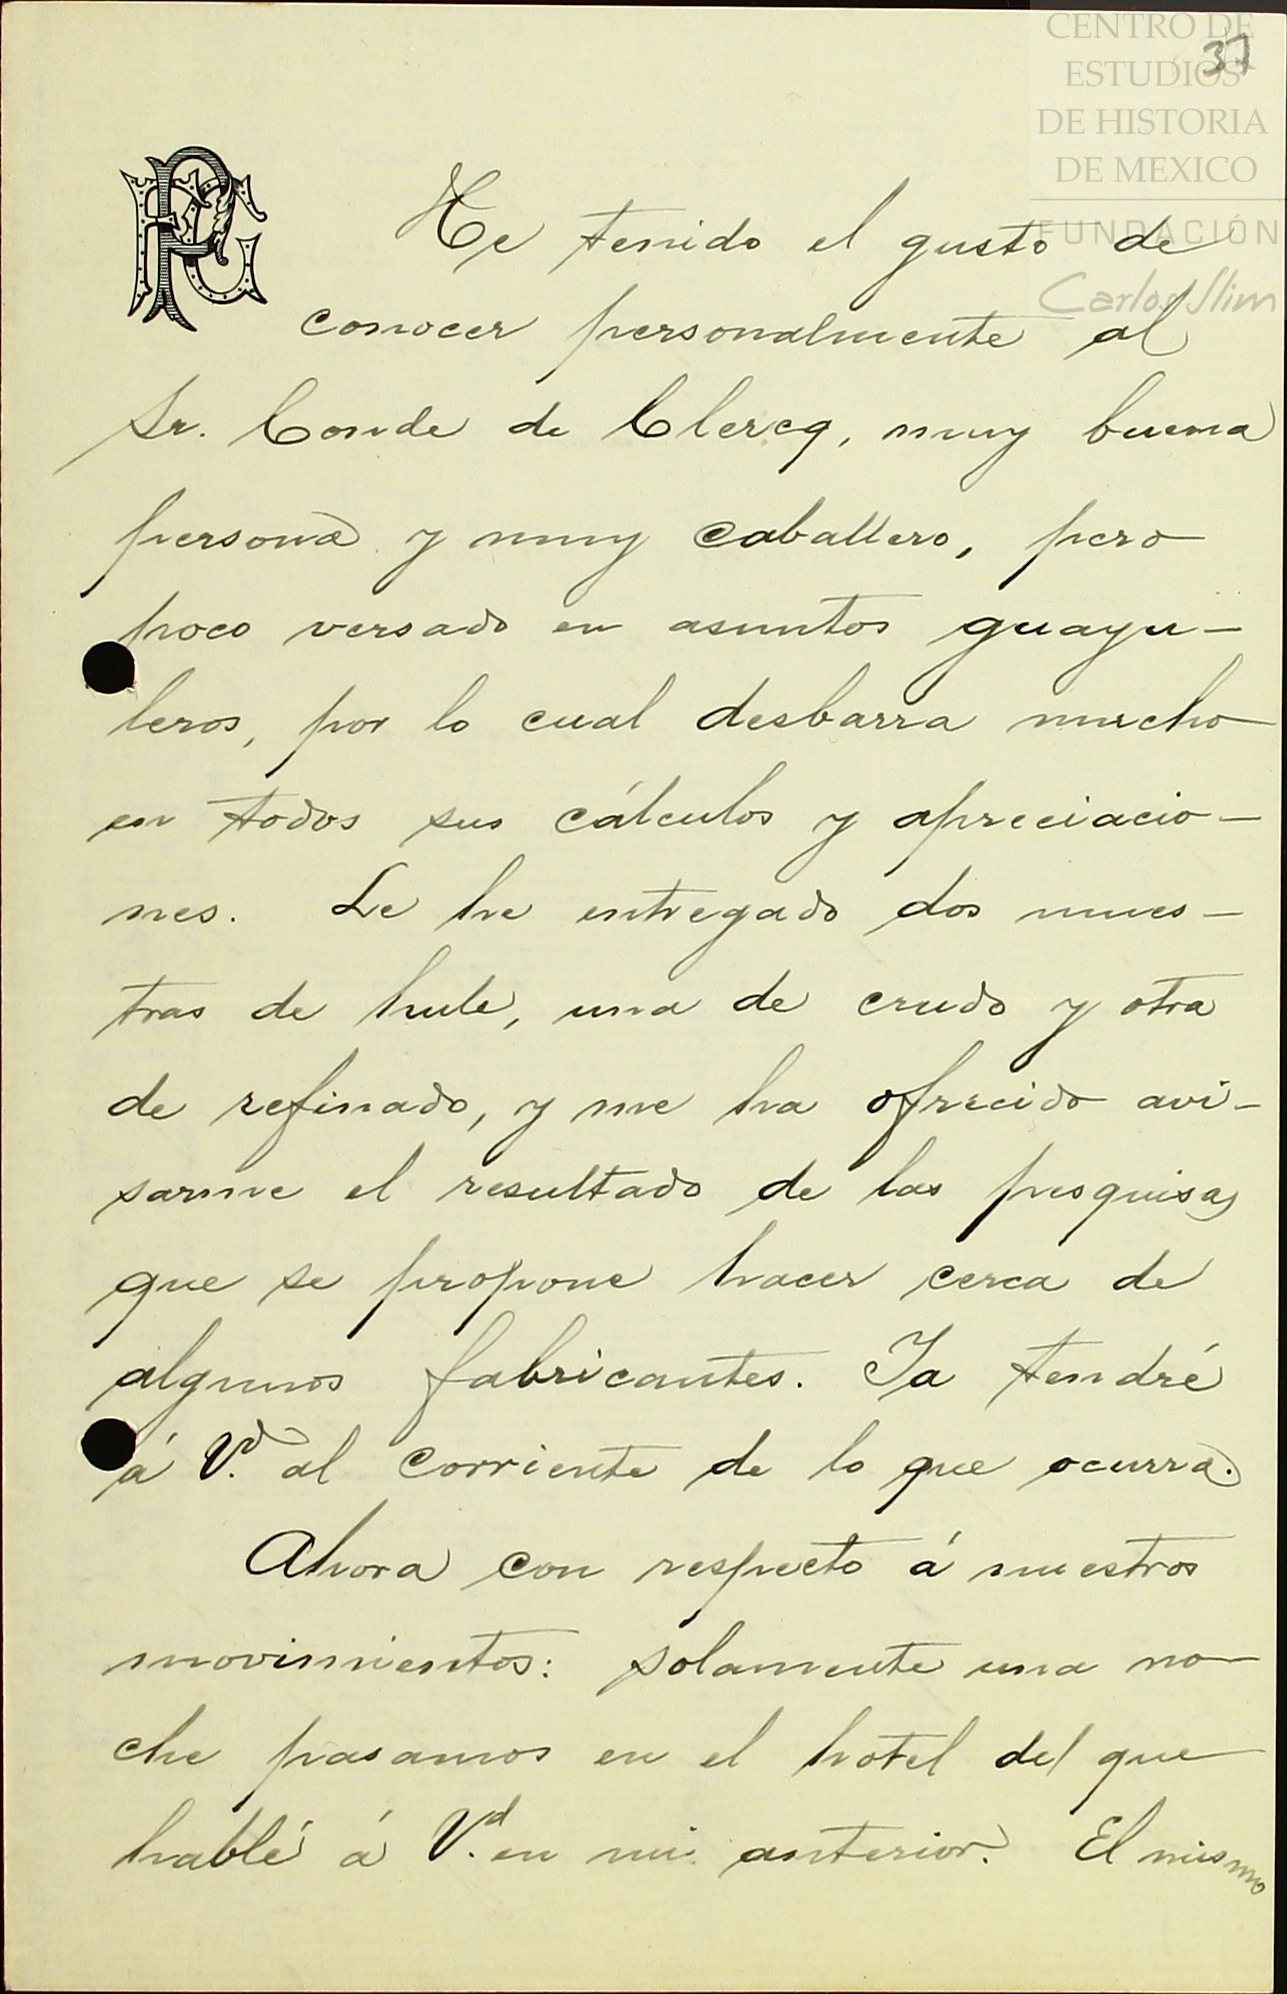 CENTRO DE
ESTUDIOS
DE HISTORIA
DE MEXICO
FUNDACIÓN
Carlos Slim
37
He tenido el gusto de
conocer personalmente al
Sr. Conde de Clercq, muy buena
persona y muy caballero, pero
poco versado en asuntos guayu-
leros, por lo cual desbarra mucho
en todos sus cálculos y apreciacio-
nes. Le he entregado dos mues-
tras de hule, una de crudo y otra
de refinado, y me ha ofrecido avi-
sarme el resultado de las pesquisas
que se propone hacer cerca de
algunos fabricantes. Ya tendré
á Vd. al corriente de lo que ocurra.
Ahora con respecto á nuestros
movimientos: solamente una no-
che pasamos en el hotel del que
hablé á Vd. en mi anterior. El mismo